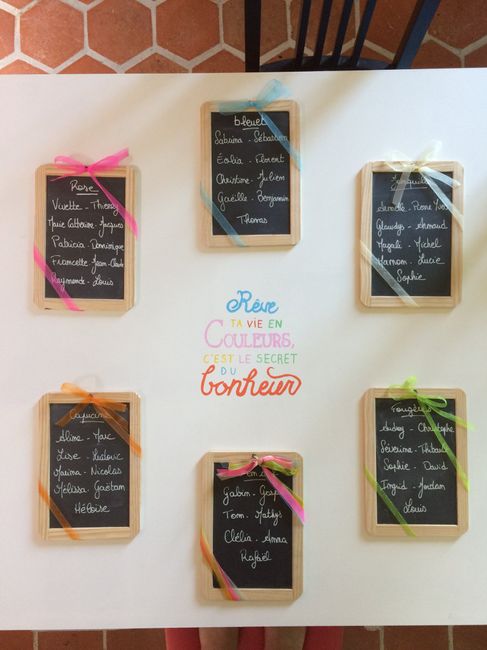 Rose
Vivette - Thierry
Marie Catherine - Jacques
Patricia - Dominique
Francette - Jean-Claude
Raymonde - Louis
bleuet
Sabrina - Sébastien
Éolia - Florent
Christine - Julien
Gaëlle - Benjamin
Thomas
Armelle - Pierre Yves
Glawdys - Arnaud
Magali - Michel
Lucie
Sophie
Rêve
TA VIE EN
COULEURS,
C'EST LE SECRET
DU
bonheur
Capucine
Aline - Marc
Lise - Ludovic
Marina - Nicolas
Mélissa Gaëtan
Héloïse
Gabin - 
Tom - Mathys
Clélia - Anna
Rafaël
Fougères
Audrey - Christophe
Séverine - Thibault
Sophie - David
Ingrid - Jordan
Louis